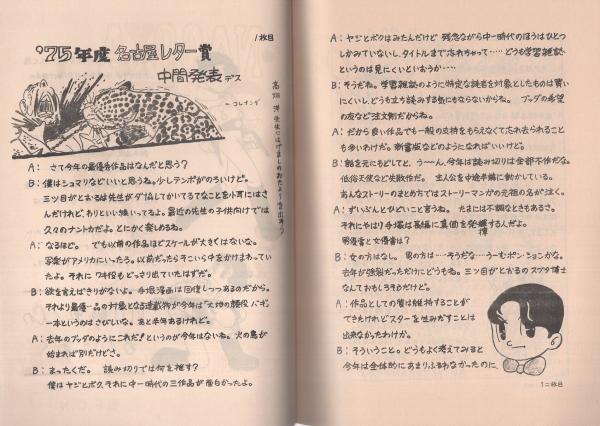 1枚目
'75年度 名古屋レター賞
中間発表デス
←コレナンダ
高畑 洋 先生にはげましのおたよりを出そう
A： さて今年の最優秀作品はなんだと思う？
B： 僕はショマリなどいいと思うね。少しテンポがのろいけど。
三ツ目がとおるは先生がダ協してかいてるてなことを小耳にはさ
んだけれど、わりといい線いってるよ。最近の先生の子供向けでは
久々のナントカだよ。とにかく楽しめるね。
A： なるほど。 でも以前の作品ほどスケールが大きくはないな。
写楽がアメリカにいったら。以前だったらそこいら中をかけまわってい
たよ。それに ワキ役もどっさり出ていたはずだ。
B： 欲を言えばきりがないよ。手塚漫画は回復しつつあるのだから。
それより最優一品の対象となる連載物が今年は「太地の顔役 バギ」
一本というのはさびしいな。あと半年あるけれど。
A： 去年のブッダのようにこれだ！というのが今年はないね。火の鳥が
始まれば別だけどさ。
B： まったくだ。 読み切りでは何を推す？
僕はヤジとボク、それに中一時代の三作品が面白かったよ。
A： ヤジとボクはみたんだけど 残念ながら中一時代のほうはひとつ
しかみていないし、タイトルまで忘れちゃって‥‥どうも学習雑誌
というのは見にくいといおうか‥‥
B： そうだね。学習雑誌のように特定な読者を対象としたものは買い
にくいし、どうも立ち読みする気にもならないからね。 ブッダの希望
の友など注文制だからね。
A： だから良い作品でも一般の支持をもらえなくて忘れ去られること
も多いわけだ。新書版などのようになればいいけど。
B： 話を元にもどしてと、う〜ん、今年は読み切りは全部不作だな。
低俗天使など失敗作だ。 主人公を中途半端に動かしている。
あんなストーリーのまとめ方ではストーリーマンガの元祖の名が泣く。
A： ずいぶんとひどいこと言うね。 たまには不調なときもあるさ。
それにやはり手塚は長編に真価を発揮するんだよ。
揮
男優賞と女優賞は？
B： 女の方はなし。 男の方は…そうだな…うーむ ポンションかな。
去年が強烈だっただけにどうもね。三ツ目がとおるのスツタ博士
なんておもしろそうだけど。
A： 作品としての質は維持することが
できたけれどスターを生みだすことは
出来なかったわけか。
B： そういうこと。どうもよく考えてみると
今年は全体的にあまりふるわなかったのに、
1ニ枚目